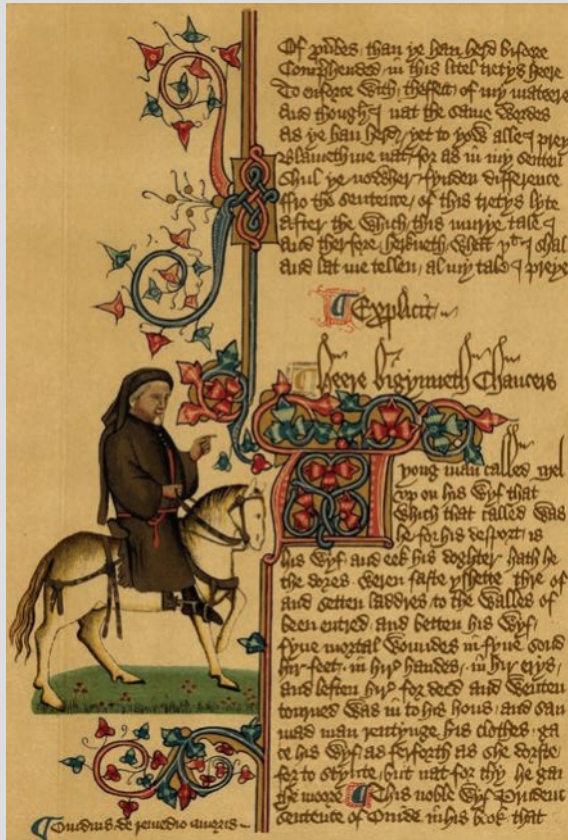 Of prouͦbes than ye han herd bifoore
Comprehended in this litel tretys heere
To enforce with theffect of my mateere
And though I nat the same wordes
as ye han herd yet to yow alle I preye
Blameth me nat for as in my senten
Shul ye nowher fynden difference
ffro the sentence of this tretys lyte
after the which this murye tale I
and therfore herkneth what þᵗ I shal
and lat me tellen al my tale I preye
Explicit
heere bigynneth Chaucers
A
yong man called Mel
vp on his wyf that
which that called was
he for his desport is
his wyf and eek his doghter hath he
the dores weren faste yshette thre of
and setten laddres to the walles of
been entred and betten his wyf
fyue mortal woundes in fyue sond
hir feet in hir handes in hir erys
and leften hir for deed and wenten
tourned was in to his hous and sau
mad man rentynge his clothes ga
te his wyf as ferforth as she dorste
for to stynte but nat for thy he gan
the moore This noble wyf Prudenc
sentence of Ouide in his book that
Ouidius de remedio amoris